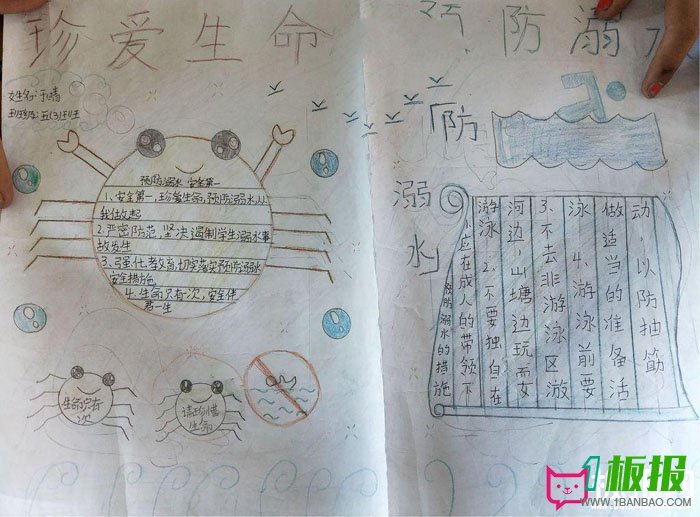 珍爱生命
防溺
姓名:于晴
班级:五(3)班
预防溺水 安全第一
1、安全第一,珍爱生命,预防溺水从
我做起
2.严密防范,坚决遏制学生溺水事
故发生
3、强化教育,切实落实预防溺水
安全措施
4.生命只有一次,安全伴
君一生
生命只有
一次
请珍惜
生命
「防溺水」
预防溺水的措施
1.应在成人的带领下
游泳 2、不要独自在
河边、山塘边玩耍
3、不去非游泳区游
泳 4、游泳前要
做适当的准备活
动,以防抽筋
1板报
WWW.1BANBAO.COM